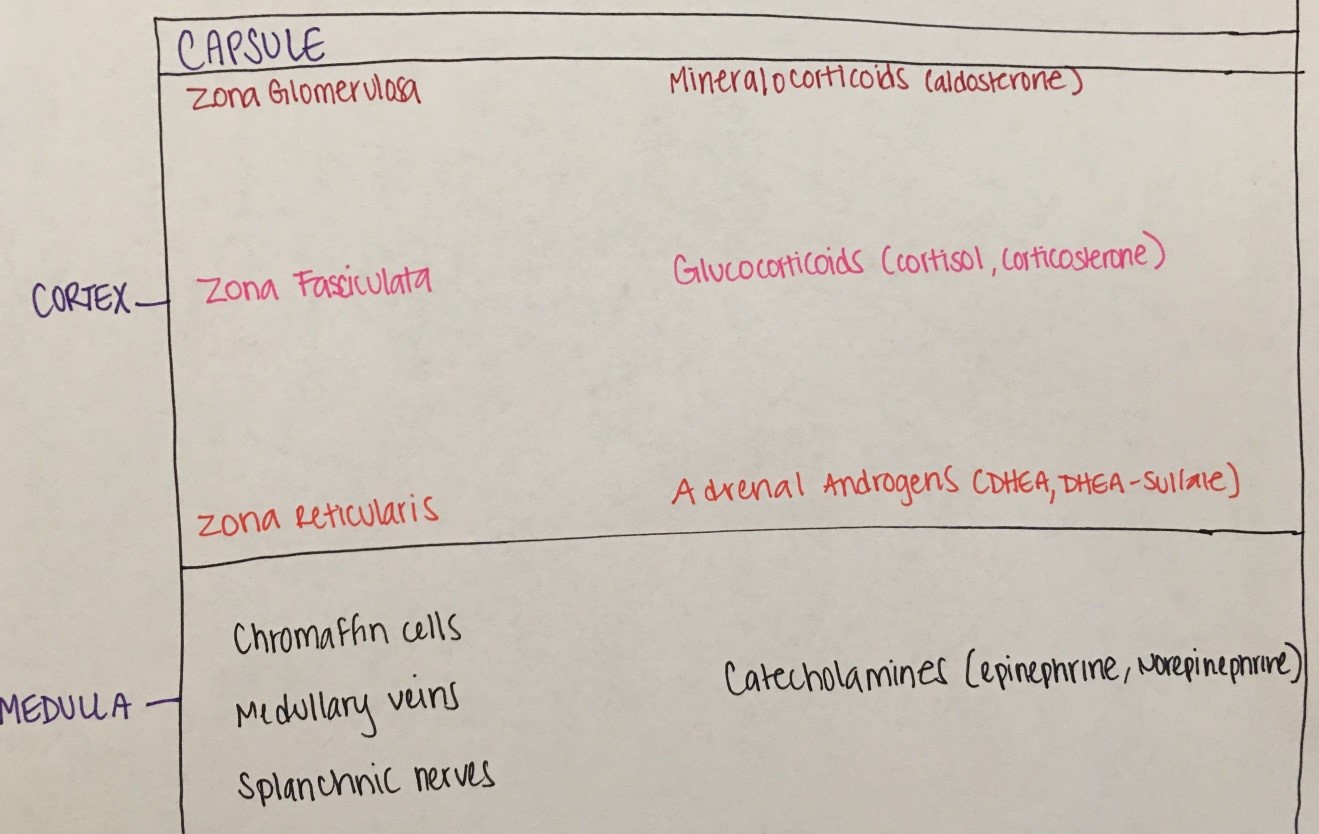 CAPSULE
Zona Glomerulosa Mineralocorticoids (aldosterone)
CORTEX Zona Fasciculata Glucocorticoids (cortisol, corticosterone)
Zona Reticularis Adrenal Androgens (DHEA, DHEA-Sulfate)
Chromaffin cells
MEDULLA Medullary veins Catecholamines (epinephrine, Norepinephrine)
Splanchnic nerves